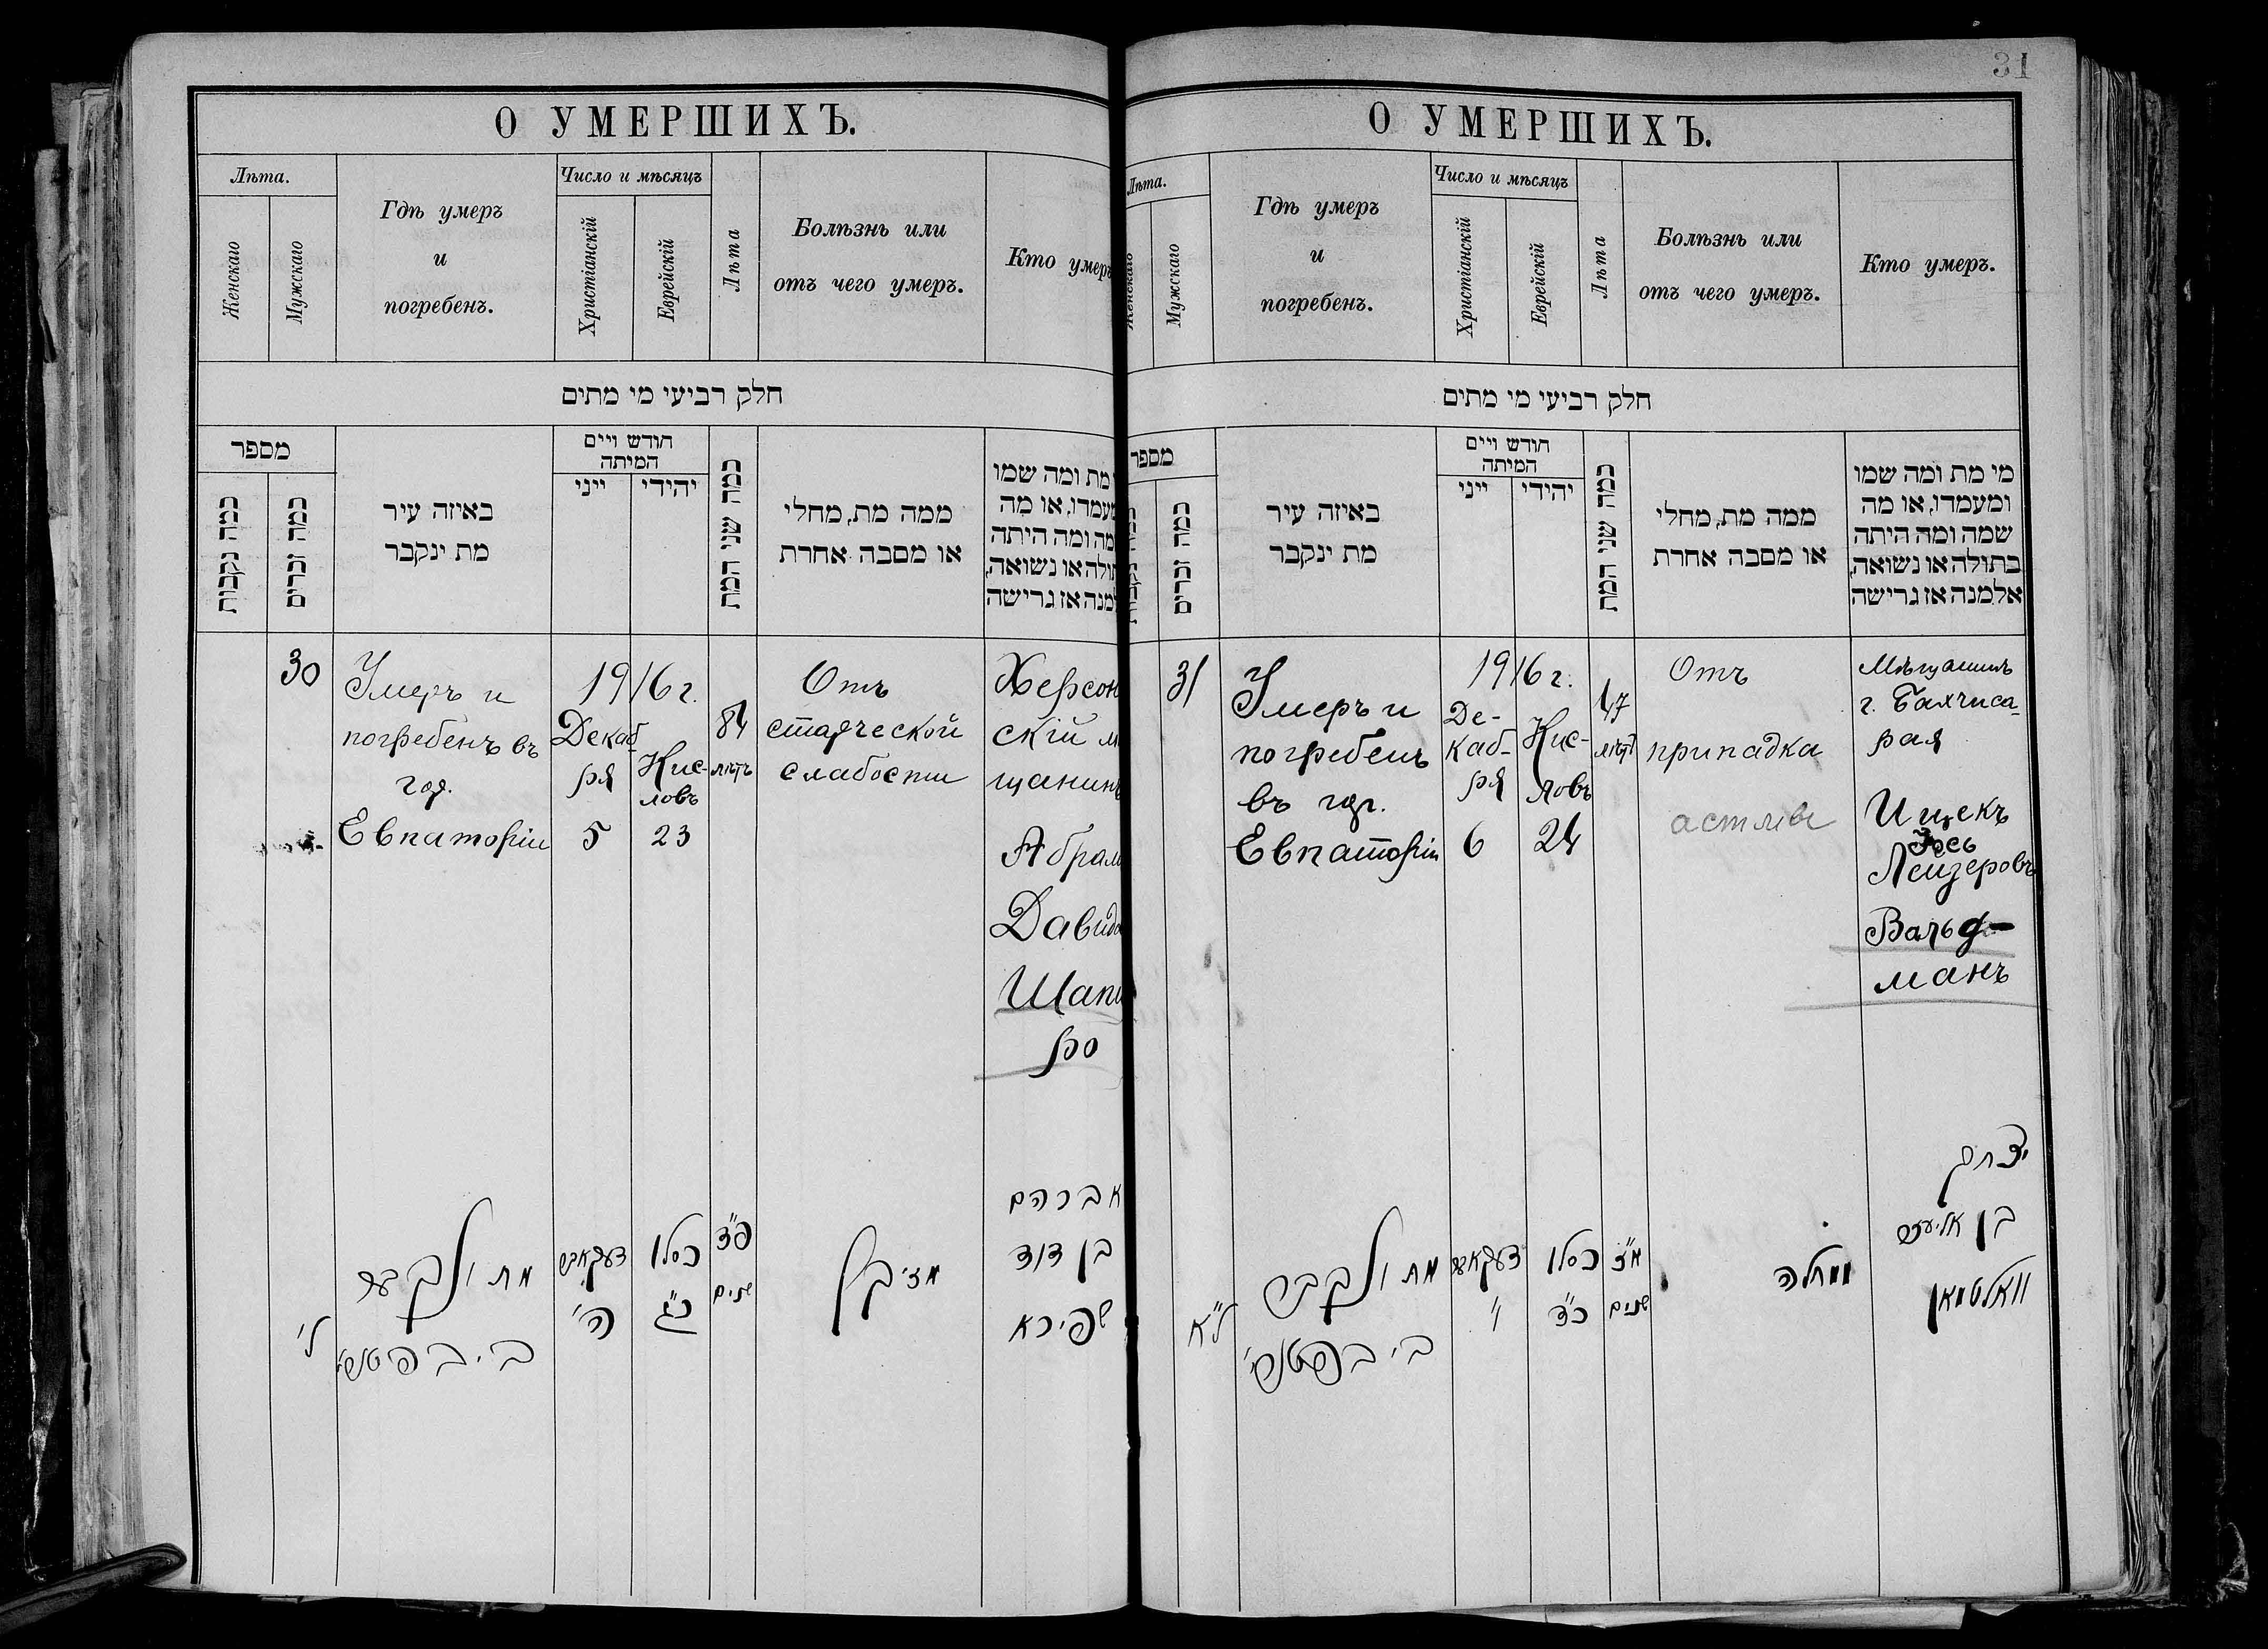 31
О УМЕРШИХЪ.
Лѣта.
Женскаго
Мужскаго
Гдѣ умеръ
и
погребенъ.
Число и мѣсяцъ
Христіанскій
Еврейскій
Лѣта
Болѣзнь или
отъ чего умеръ.
Кто умеръ
חלק רביעי מי מתים
מספר
כמה נקבות
כמה זכרים
באיזה עיר
מת ינקבר
חודש ויים
המיתה
ייני
יהודי
כמה שני המת
ממה מת, מחלי
או מסבה אחרת
מת ומה שמו
מעמדו, או מה
מה ומה היתה
תולה או נשואה,
למנה אז גרישה
30
Умеръ и
погребенъ въ
гор.
Евпаторіи
1916 г.
Декаб
ря
5
Кис-
ловъ
23
84
лѣтъ
Отъ
старческой
слабости
Херсон
скій м
щанинъ
Абрам
Давидо
Шапи
ро
ל'
מת ונקבר
דעקאבר
ה'
כסלו
כ"ג
פ"ד
שנים
אברהם
בן דוד
שפירא
О УМЕРШИХЪ.
Лѣта.
Женскаго
Мужскаго
Гдѣ умеръ
и
погребенъ.
Число и мѣсяцъ
Христіанскій
Еврейскій
Лѣта
Болѣзнь или
отъ чего умеръ.
Кто умеръ.
חלק רביעי מי מתים
מספר
כמה נקבות
כמה זכרים
באיזה עיר
מת ינקבר
חודש ויים
המיתה
ייני
יהודי
כמה שני המת
ממה מת, מחלי
או מסבה אחרת
מי מת ומה שמו
ומעמדו, או מה
שמה ומה היתה
בתולה או נשואה,
אלמנה אז גרישה
31
Умеръ и
погребенъ
въ гор.
Евпаторіи
1916 г.
Де-
каб-
ря
6
Кис-
ловъ
24
47
лѣтъ
Отъ
припадка
астмы
Мѣщанинъ
г. Бахчиса-
рая
Ицекъ
Лейзеровъ
Вальд-
манъ
ל"א
מת ונקבר
דעקאבר
ו'
כסלו
כ"ד
מ"ז
שנים
ממחלה
יצחק
בן אליעזר
וואלטמאן